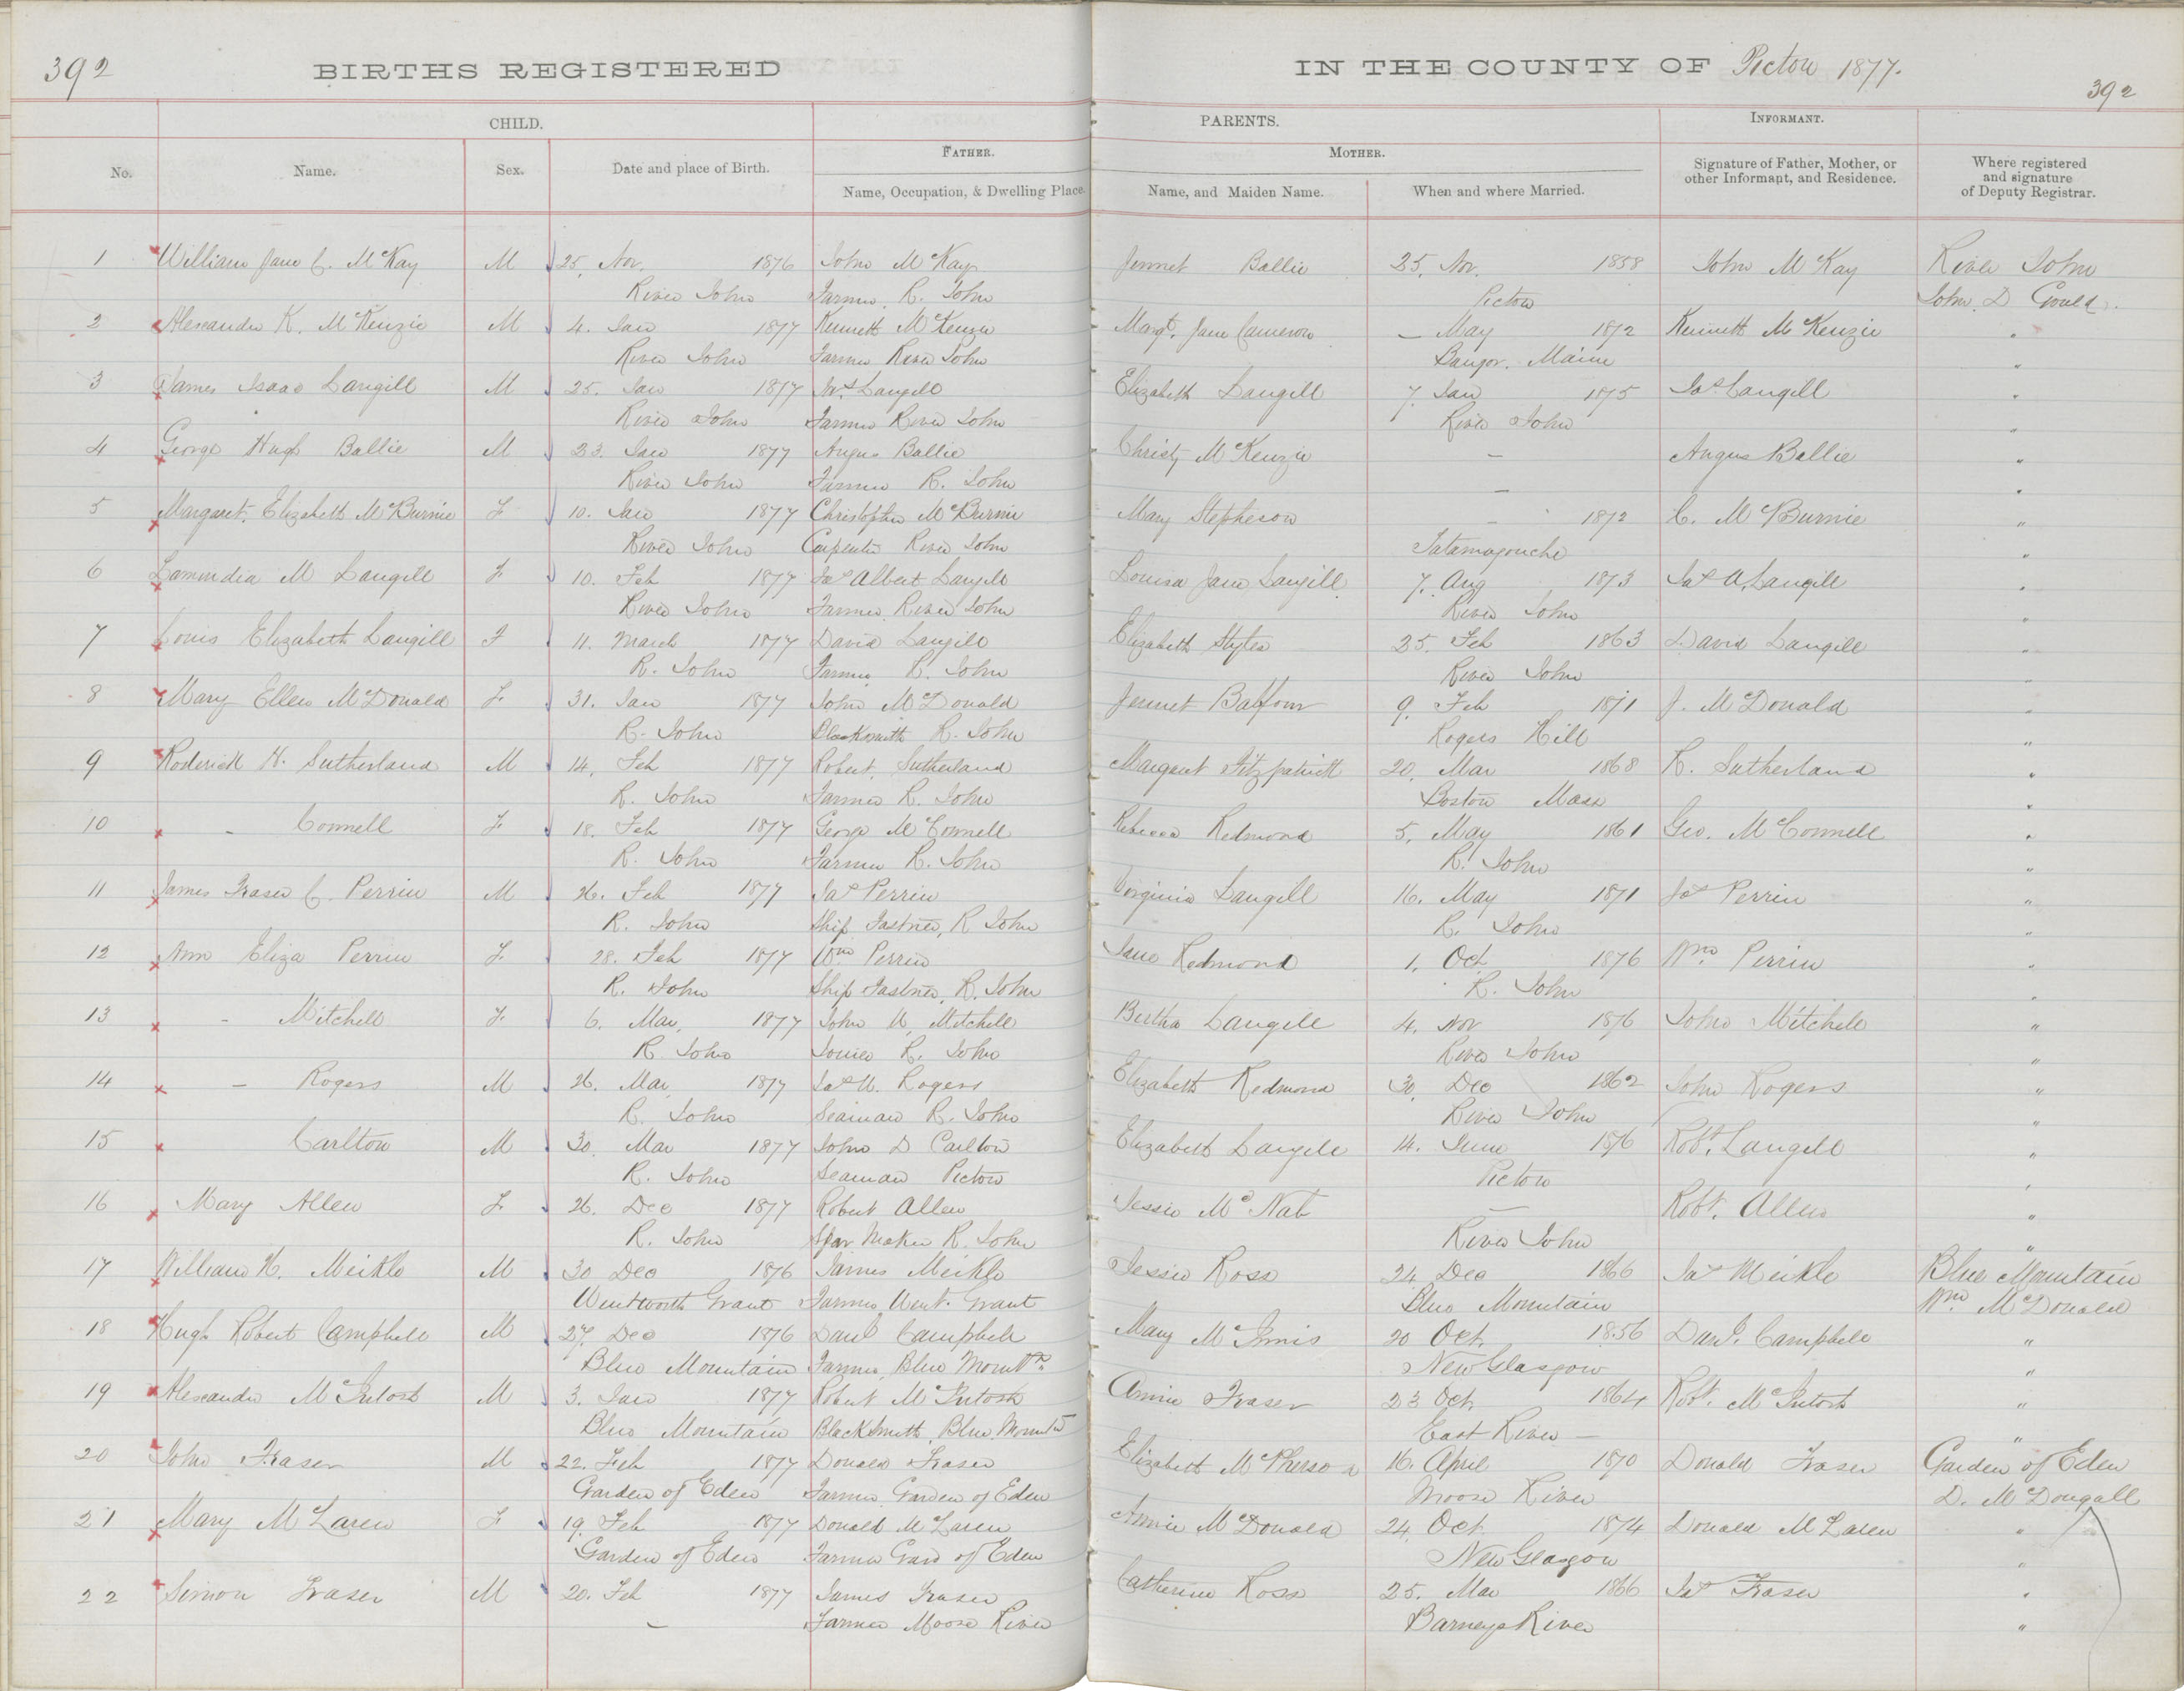 392
BIRTHS REGISTERED IN THE COUNTY OF Pictou 1877.
392
CHILD. PARENTS. INFORMANT.
FATHER. MOTHER.
No. Name. Sex. Date and place of Birth. Name, Occupation, & Dwelling Place. Name, and Maiden Name. When and where Married. Signature of Father, Mother, or other Informant, and Residence. Where registered and signature of Deputy Registrar.
1 William Jane C. McKay M 25. Nov. 1876 John McKay Jennet Ballie 25. Nov. 1858 John McKay River John
River John Farmer. R. John Pictou John D Gould.
2 Alexander K. McKenzie M 4. Jan 1877 Kenneth McKenzie Margt. Jane Cameron – May 1872 Kenneth McKenzie "
River John Farmer River John Bangor. Maine "
3 James Isaac Langill M 25. Jan 1877 Jas Langill Elizabeth Langill 7. Jan 1875 Jas Langill "
River John Farmer River John River John "
4 George Hugh Ballie M 23. Jan 1877 Angus Ballie Christy McKenzie – Angus Ballie "
River John Farmer R. John – "
5 Margaret Elizabeth McBurnie F 10. Jan 1877 Christopher McBurnie Mary Stepheson – 1872 C. McBurnie "
River John Carpenter River John Tatamagouche "
6 M Langill F 10. Feb 1877 Jas Albert Langill Louisa Jane Langill 7. Aug 1873 Jas A. Langill "
River John Farmer River John River John "
7 Louis Elizabeth Langill F 11. March 1877 David Langill Elizabeth Styles 25. Feb 1863 David Langill "
R. John Farmer R. John River John "
8 Mary Ellen McDonald F 31. Jan 1877 John McDonald Jennet Balfour 9. Feb 1871 J. McDonald "
R. John Blacksmith R. John Rogers Hill "
9 Roderick H. Sutherland M 14. Feb 1877 Robert Sutherland Margaret Fitzpatrick 20. Mar 1868 R. Sutherland "
R. John Farmer R. John Boston Mass "
10 – Connell F 18. Feb 1877 George McConnell Rebecca Redmond 5. May 1861 Geo. McConnell "
R. John Farmer R. John R. John "
11 James Fraser C. Perrin M 26. Feb 1877 Jas Perrin Virginia Langill 16. May 1871 Jas Perrin "
R. John Ship Fastner, R John R. John "
12 Ann Eliza Perrin F 28. Feb 1877 Wm Perrin Jane Redmond 1. Oct 1876 Wm Perrin "
R. John Ship Fastner, R. John R. John "
13 – Mitchell F 6. Mar. 1877 John W. Mitchell Bertha Langill 4. Nov 1876 John Mitchell "
R. John R. John River John "
14 – Rogers M 26. Mar 1877 Jas W. Rogers Elizabeth Redmond 30. Dec 1862 John Rogers "
R. John Seaman R. John River John "
15 Carlton M 30. Mar 1877 John D Carlton Elizabeth Langill 14. June 1876 Robt. Langill "
R. John Seaman Pictou Pictou "
16 Mary Allen F 26. Dec 1877 Robert Allen Jessie McNab – Robt. Allen "
R. John Spar Maker R. John River John "
17 William H. Meikle M 30 Dec 1876 James Meikle Jessie Ross 24 Dec 1866 Jas Meikle Blue Mountain
Wentworth Grant Farmer, Went. Grant Blue Mountain Wm McDonald
18 Hugh Robert Campbell M 27. Dec 1876 Danl Campbell Mary McInnis 20 Oct. 1856 Danl. Campbell "
Blue Mountain Farmer, Blue Mountn. New Glasgow "
19 Alexander McIntosh M 3. Jan 1877 Robert McIntosh Annie Fraser 23 Oct 1864 Robt. McIntosh "
Blue Mountain BlackSmith, Blue Mountn East River – "
20 John Fraser M 22. Feb 1877 Donald Fraser Elizabeth McPherson 16. April 1870 Donald Fraser Garden of Eden
Garden of Eden Farmer Garden of Eden Moose River D. McDougall
21 Mary McLaren F 19. Feb 1877 Donald McLaren Annie McDonald 24. Oct. 1874 Donald McLaren "
Garden of Eden Farmer Gard of Eden New Glasgow "
22 Simon Fraser M 20. Feb 1877 James Fraser Catherine Ross 25. Mar 1866 Jas Fraser "
– Farmer Moose River Barneys River "